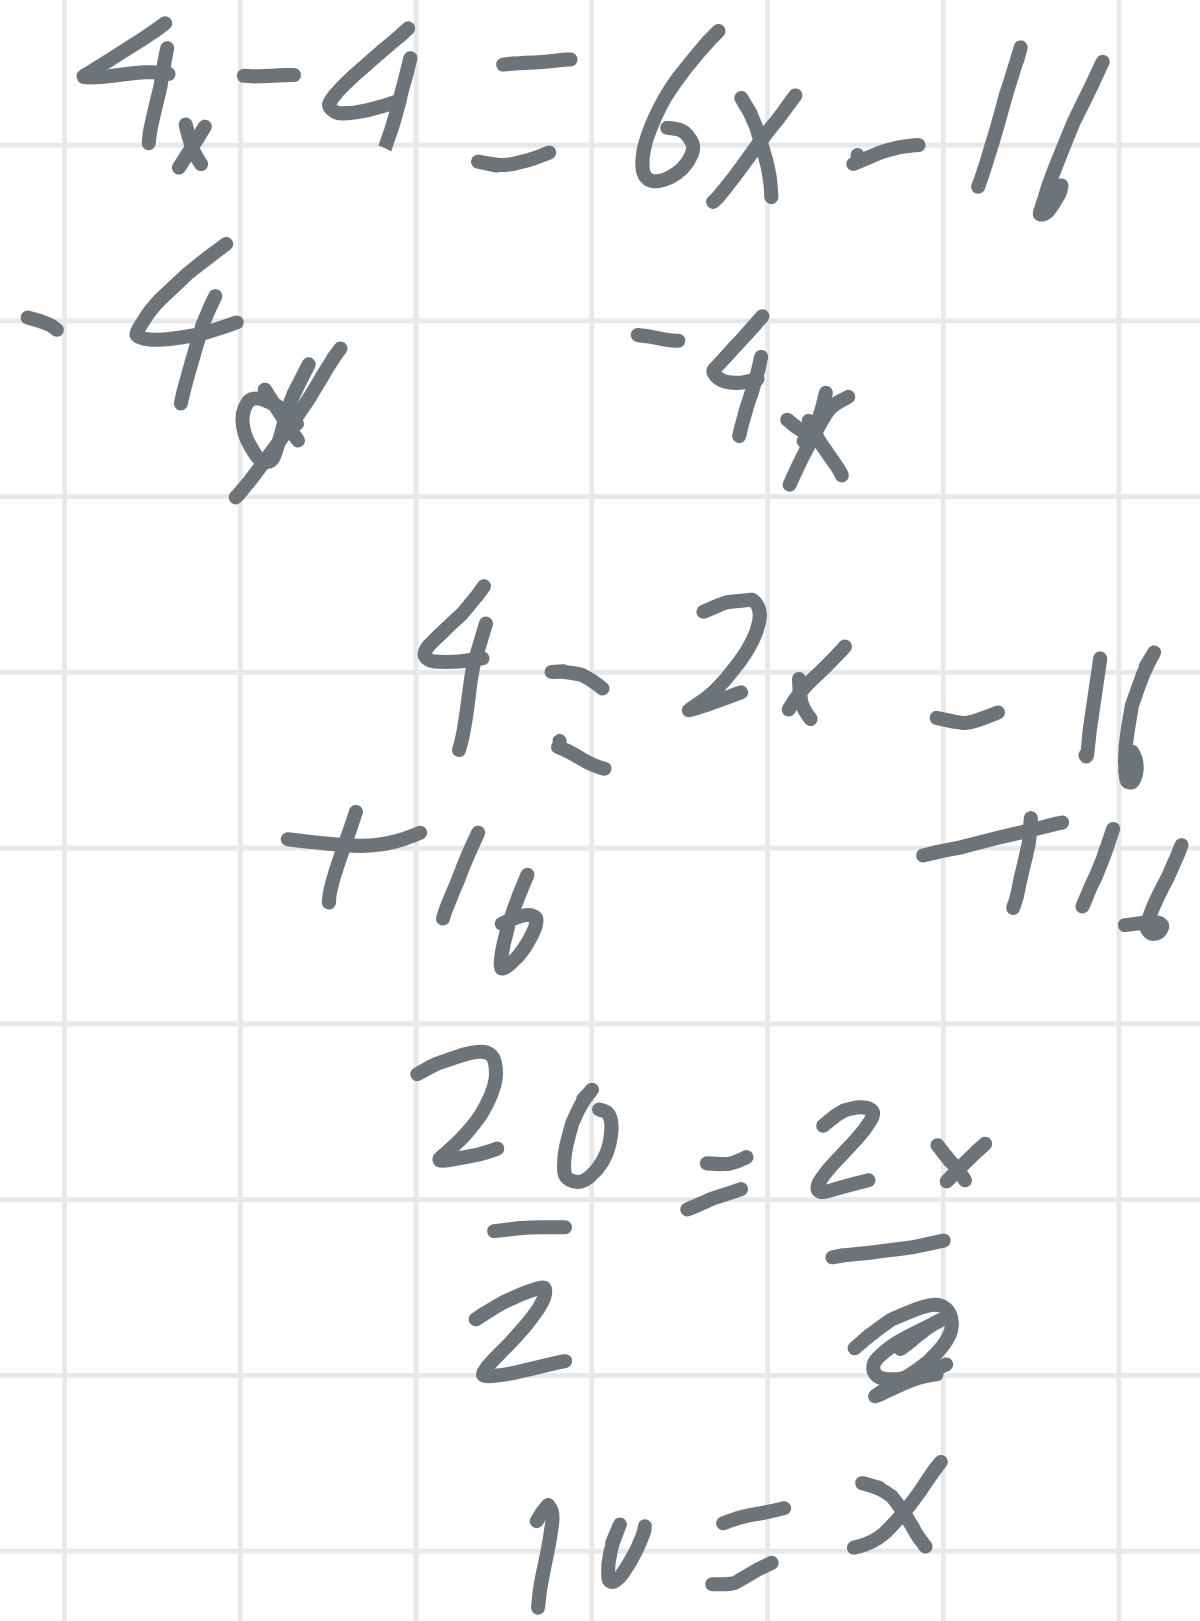 4x - 4 = 6x - 16
- 4x - 4x
4 = 2x - 16
+ 16 + 16
20 = 2x
2 2
10 = x